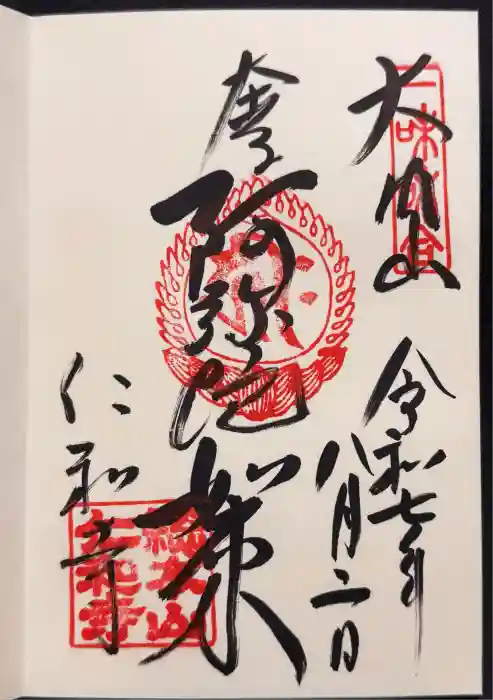 大内山
一味和合
令和七年
八月二日
奉
阿弥陀如来
仁和寺
總本山
仁和寺